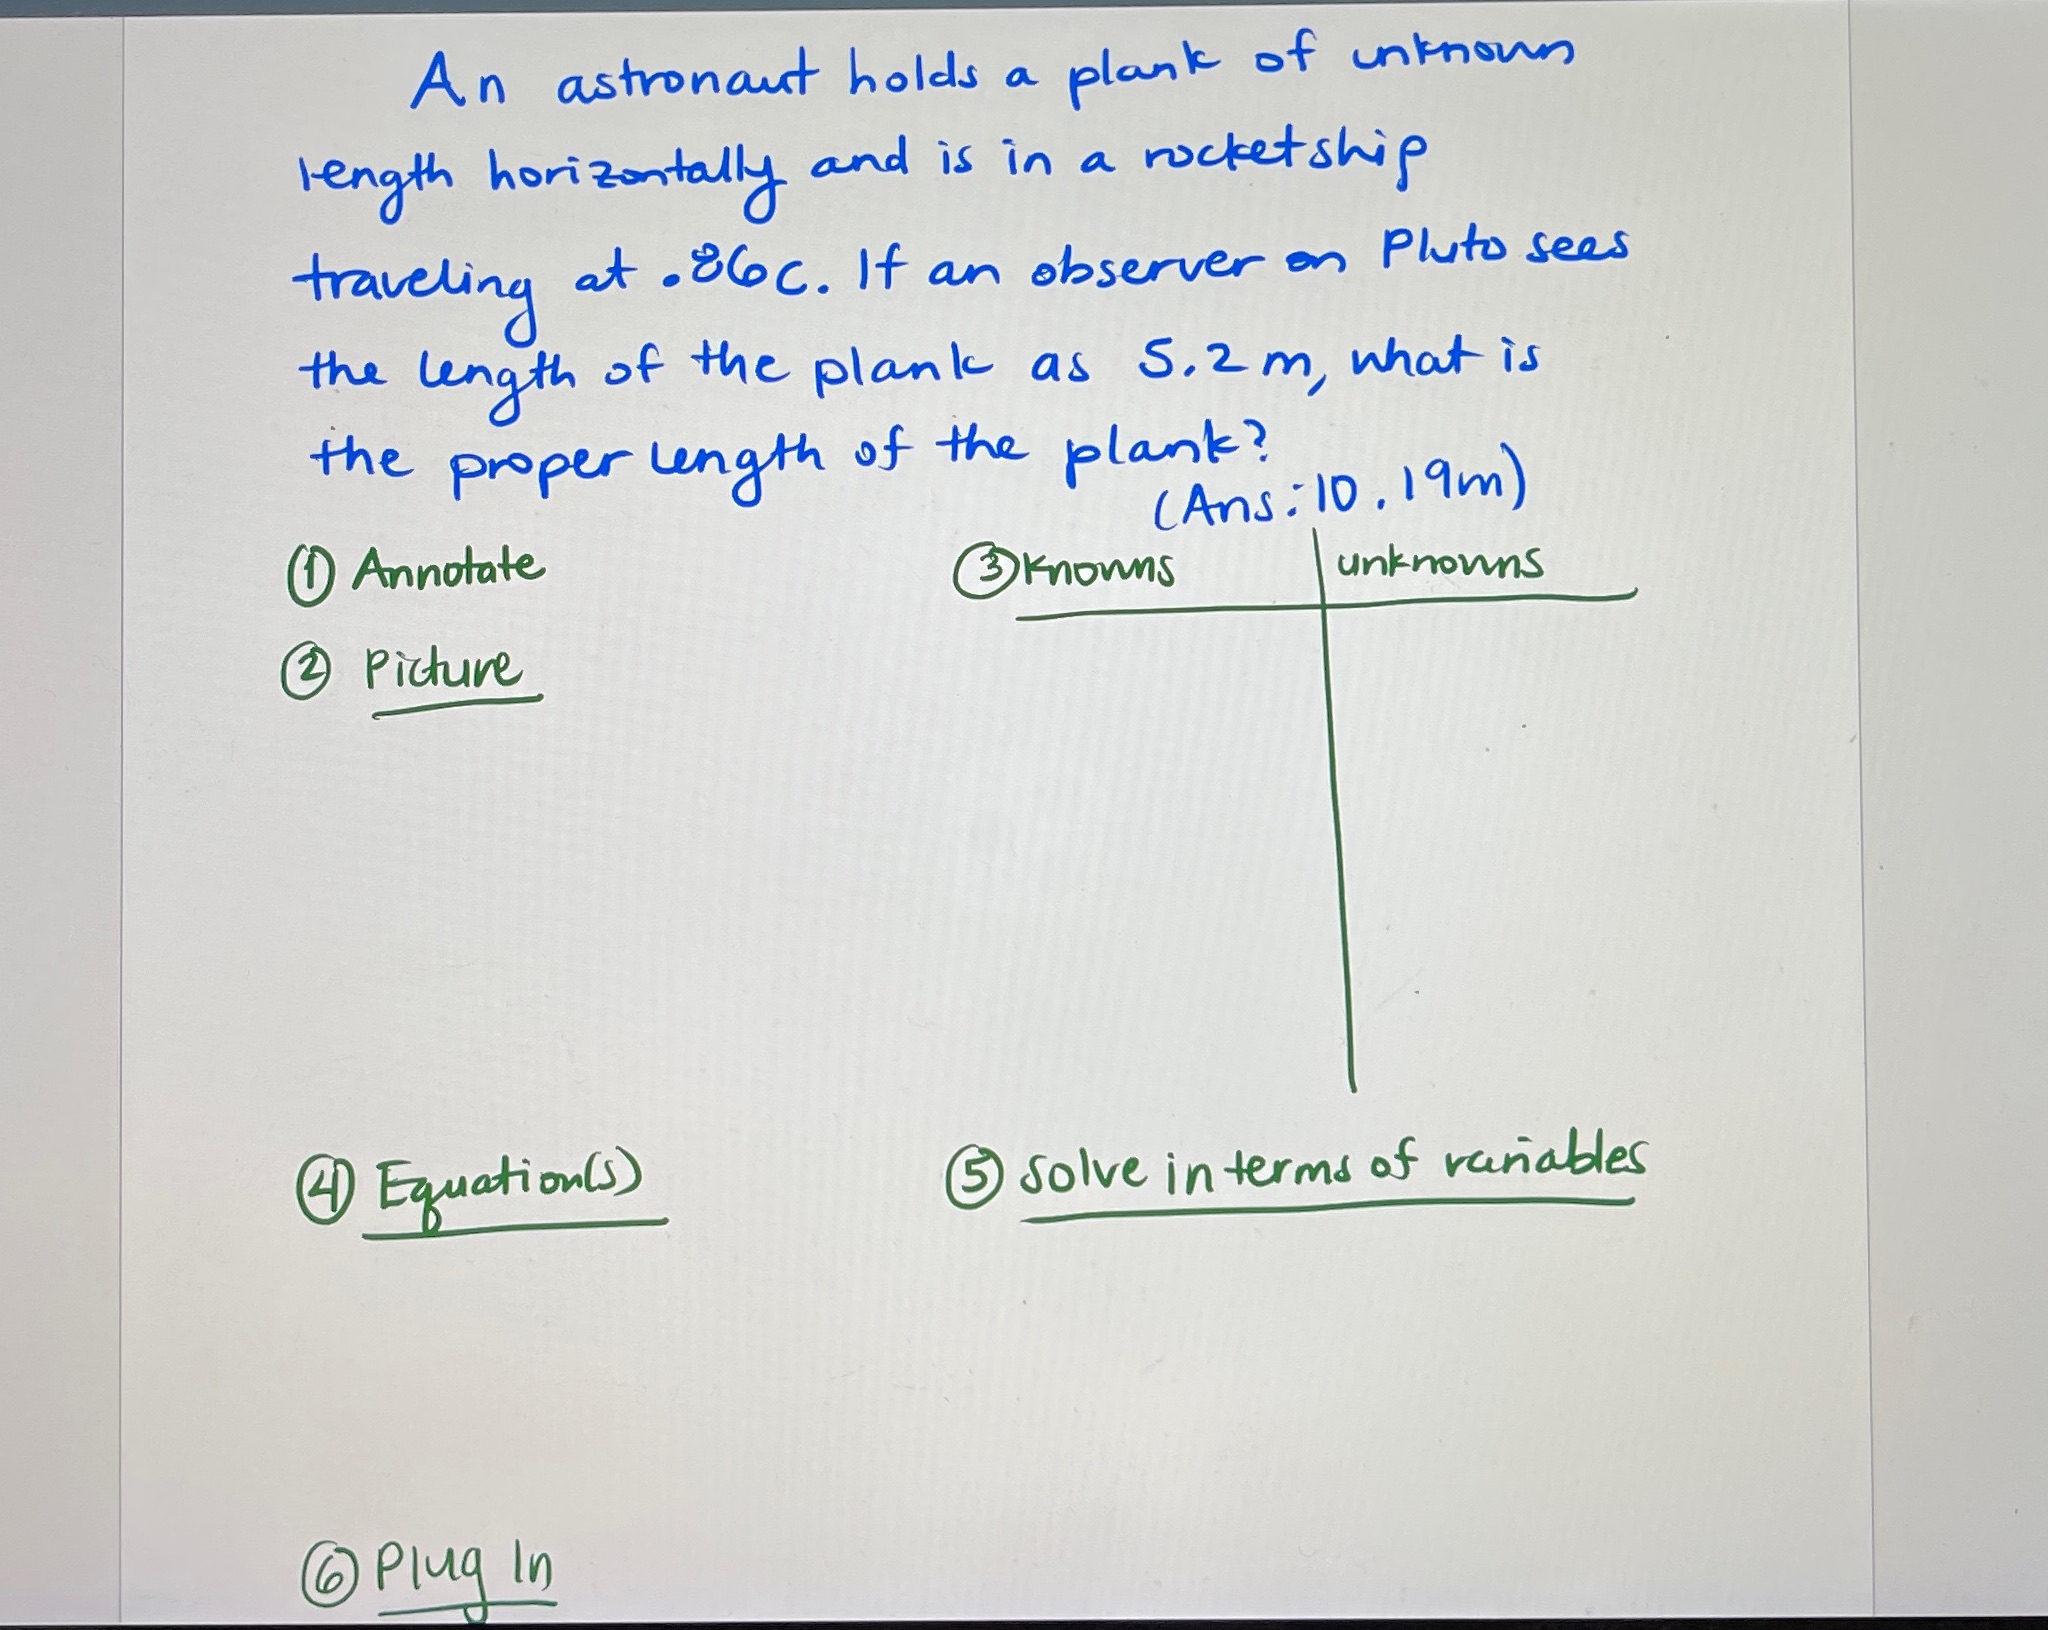 An astronaut holds a plank of unknown
length horizontally and is in a rocketship
traveling at .86c. If an observer on Pluto sees
the length of the plank as 5.2m, what is
the proper length of the plank?
(Ans: 10.19m)
① Annotate
② Picture
③ Knowns | unknowns
④ Equation(s)
⑤ Solve in terms of variables
⑥ Plug In